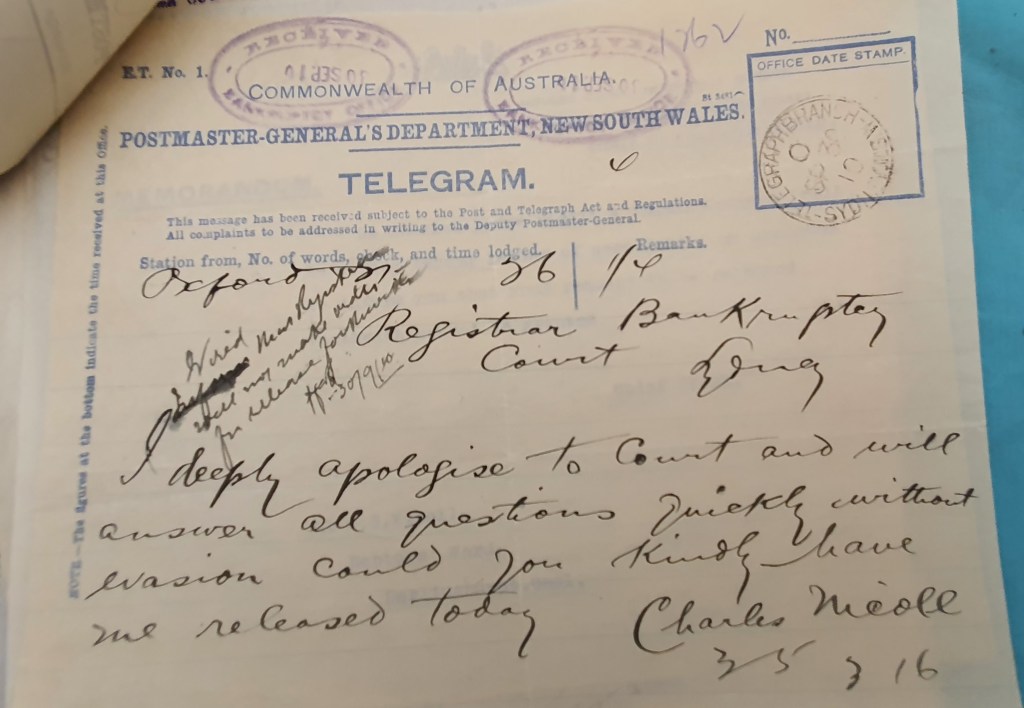 RECEIVED
30 SEP 10
BANKRUPTCY OFFICE
RECEIVED
30 SEP 10
1762
No.
E.T. No. 1.
COMMONWEALTH OF AUSTRALIA.
OFFICE DATE STAMP.
POSTMASTER-GENERAL'S DEPARTMENT, NEW SOUTH WALES.
TELEGRAPH BRANCH
SYDNEY
TELEGRAM.
This message has been received subject to the Post and Telegraph Act and Regulations.
All complaints to be addressed in writing to the Deputy Postmaster-General.
Station from, No. of words, check, and time lodged.
Remarks.
Oxford St 36 1/4
Wired
Registrar
will not make order
for release forthwith
30/9/10
Registrar Bankruptcy
Court Sydney
I deeply apologise to Court and will
answer all questions quickly without
evasion could you kindly have
me released today Charles Nicoll
3 16
NOTE.—The figures at the bottom indicate the time received at this Office.